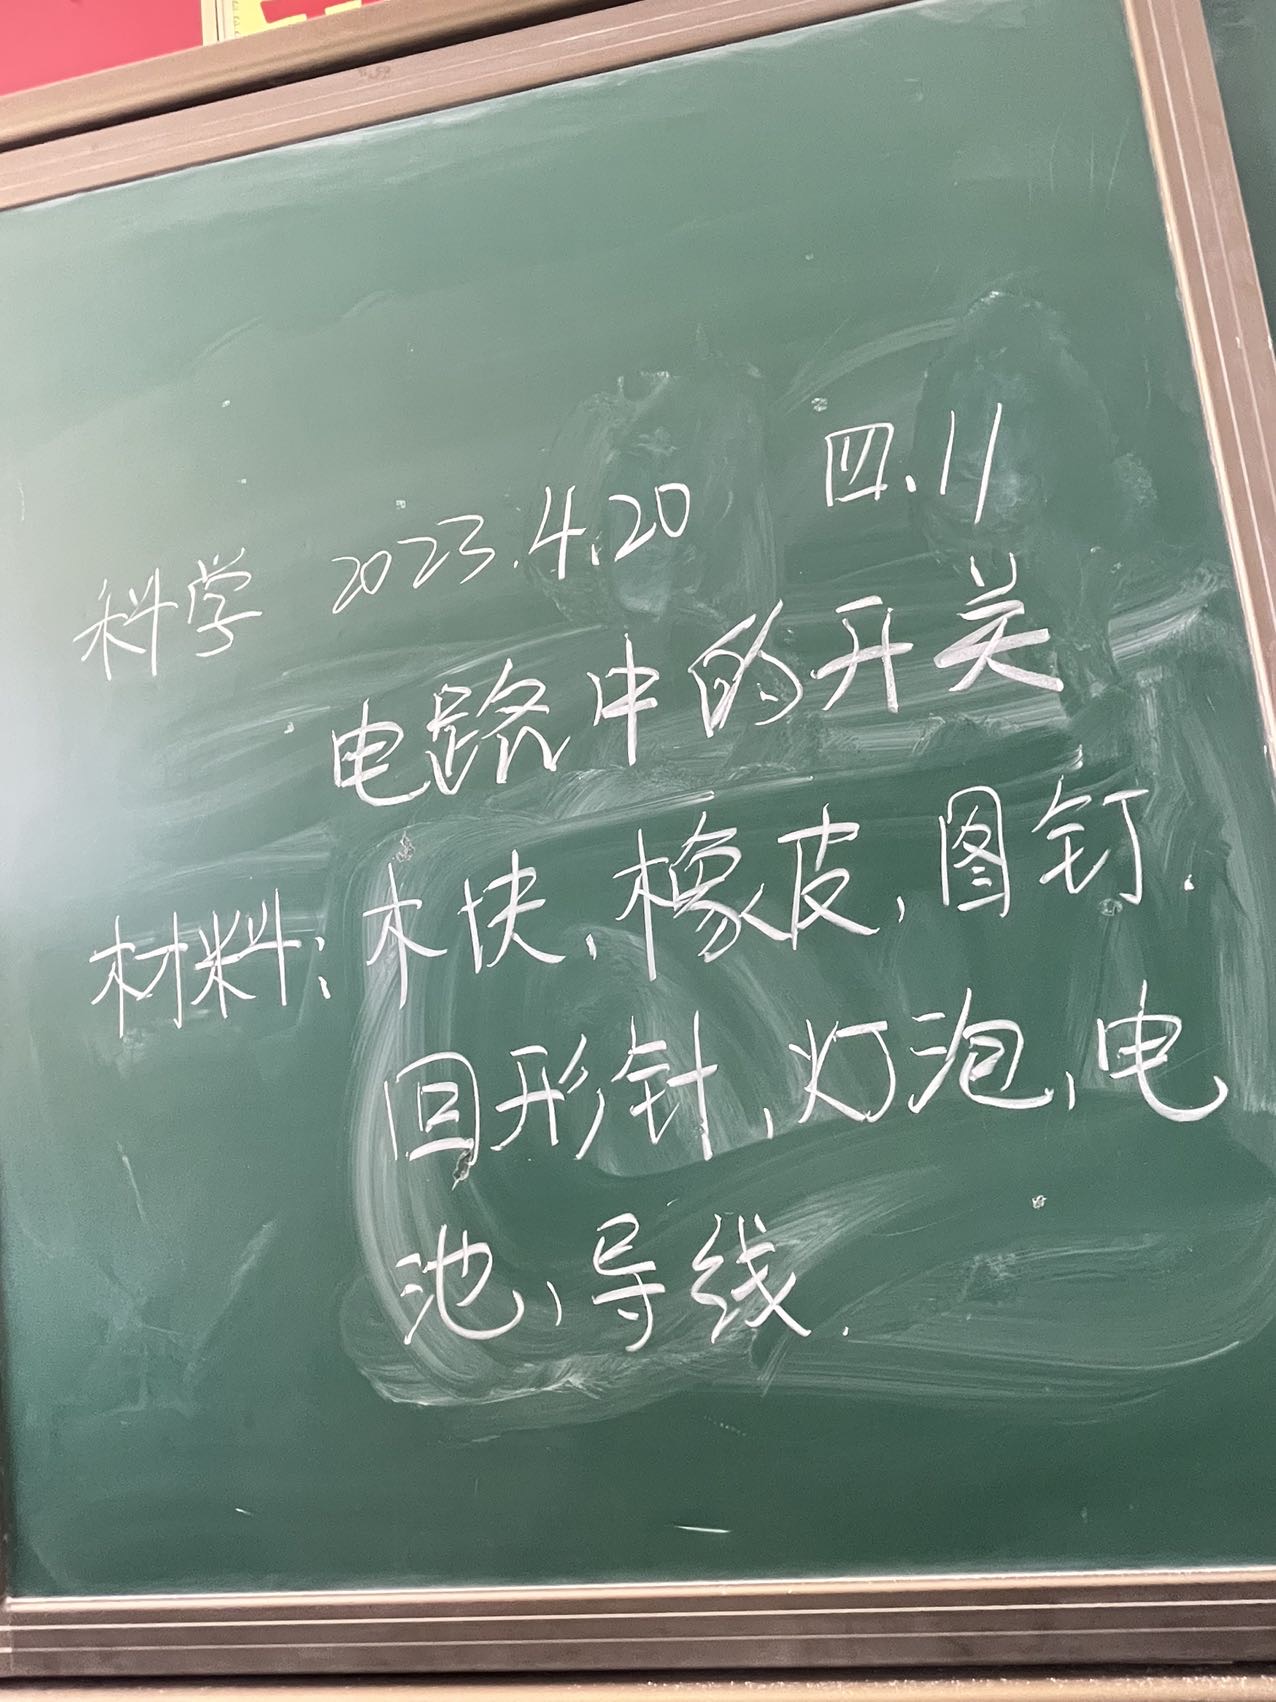 科学 2023.4.20 四.11
电路中的开关
材料:木块,橡皮,图钉.
回形针,灯泡,电
池,导线.